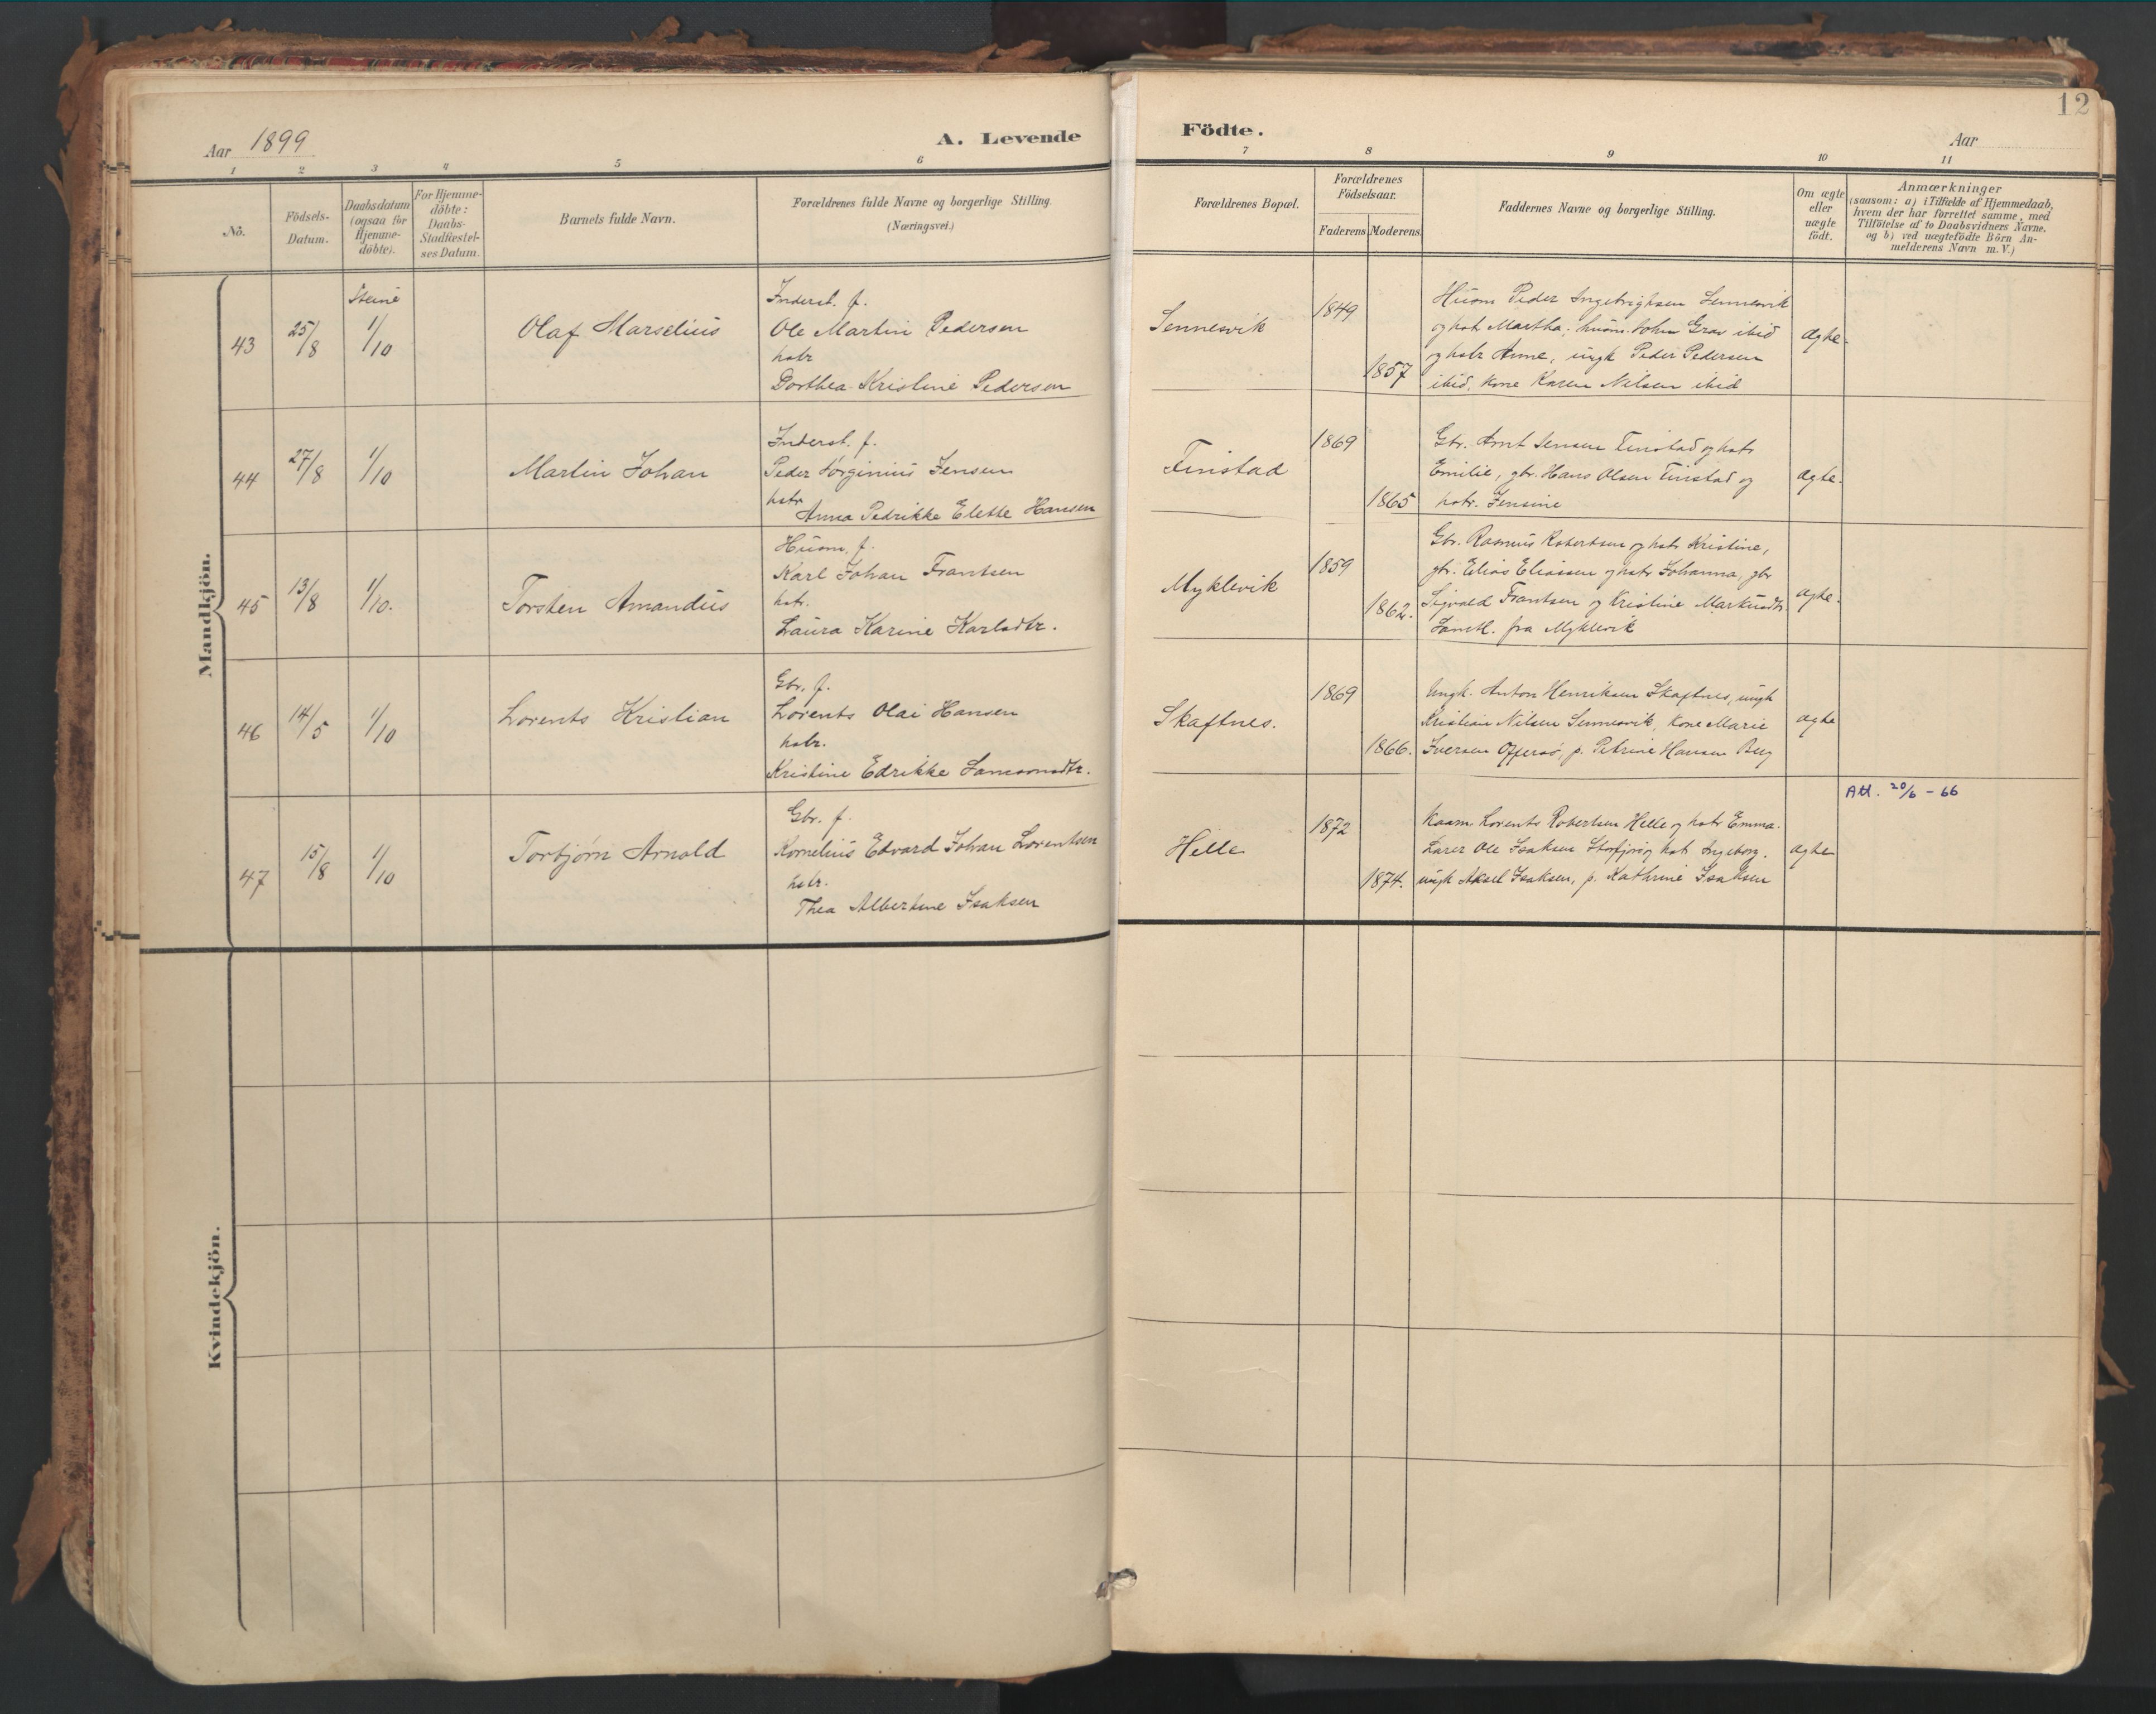 12
Aar 1899
A. Levende Födte.
Aar
1 2 3 4 5 6 7 8 9 10 11
Nö.
Födsels-Datum.
Daabsdatum (ogsaa for Hjemme-döbte).
For Hjemme-döbte: Daabs-Stadfæstel-ses Datum.
Barnets fulde Navn.
Forældrenes fulde Navne og borgerlige Stilling. (Næringsvei.)
Forældrenes Bopæl.
Forældrenes Födselsaar.
Faderens. Moderens.
Faddernes Navne og borgerlige Stilling.
Om ægte eller uægte födt.
Anmærkninger
(saasom: a) i Tilfælde af Hjemmedaab,
hvem der har forrettet samme, med
Tilföielse af to Daabsvidners Navne,
og b) ved uægtefödte Börn An-
melderens Navn m.V.)
Mandkjön.
Steine
43 25/8 1/10 Olaf Marselius
Inderst. f.
Ole Martin Pedersen
hstr
Dorthea Kristine Pedersen
Sennesvik 1849 1857
Husm Peder Ingebrigtsen Sennesvik
og hst. Martha, husm. John Grav ibid
og hstr Anne, ungk Peder Pedersen
ibid, kone Karen Nilsen ibid
ægte.
44 27/8 1/10 Martin Johan
Inderst. f.
Peder Jørginius Jensen
hstr
Anna Pedrikke Elette Hansen
Finstad 1869 1865
Gbr. Arnt Jensen Finstad og hstr
Emilie, gbr. Hans Olsen Finstad og
hstr. Jensine
ægte.
45 13/8 1/10. Torsten Amandus
Husm. f.
Karl Johan Frantsen
hstr.
Laura Karine Karlsdtr.
Myklevik 1859 1862.
Gbr. Rasmus Robertsen og hstr Kristine,
gbr. Elias Eliassen og hstr Johanna, gbr
Sigvald Frantsen og Kristine Markusdtr
fra Myklevik
ægte.
46 14/5 1/10 Lorents Kristian
Gbr. f.
Lorents Olai Hansen
hstr.
Kristine Edrikke Samsonsdtr.
Skaftnes. 1869 1866.
Ungk. Anton Henriksen Skaftnes, ungk
Kristian Nilsen Sennesvik, Kone Marie
Iversen Offersø, p. Petrine Hansen Berg
ægte
47 15/8 1/10 Torbjørn Arnold
Gbr. f.
Kornelius Edvard Johan Lorentsen
hstr.
Thea Albertine Isaksen
Helle 1872 1874.
Kaarm. Lorents Robertsen Helle og hstr Emma.
Lærer Ole Isaksen Storfjord og hst. Ingeborg.
ungk Aksel Isaksen, p. Kathrine Isaksen
ægte
Att. 20/6 - 66
Kvindekjön.